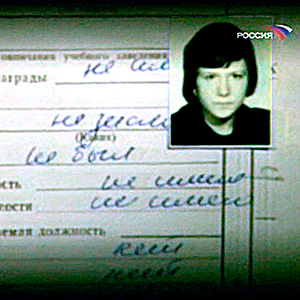 РОССИЯ
окончания учебного заведения
награды не им
не знаю
(Каких)
не был
ость не имею
ости не имею
аемая должность
нет
нет